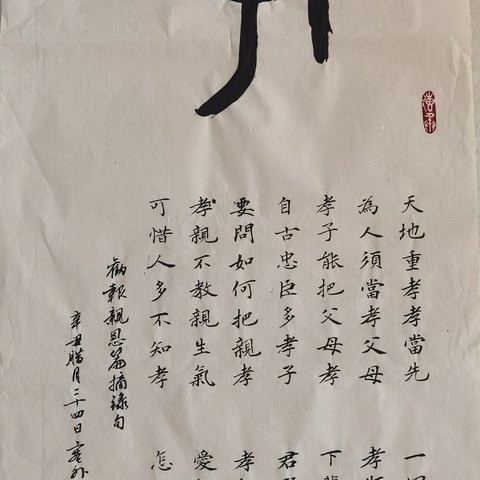 天地重孝孝當先 一
為人須當孝父母 孝
孝子能把父母孝 下
自古忠臣多孝子 君
要問如何把親孝 孝
孝親不教親生氣 愛
可惜人多不知孝 怎
勸報親恩篇摘錄句
辛丑臘月二十四日